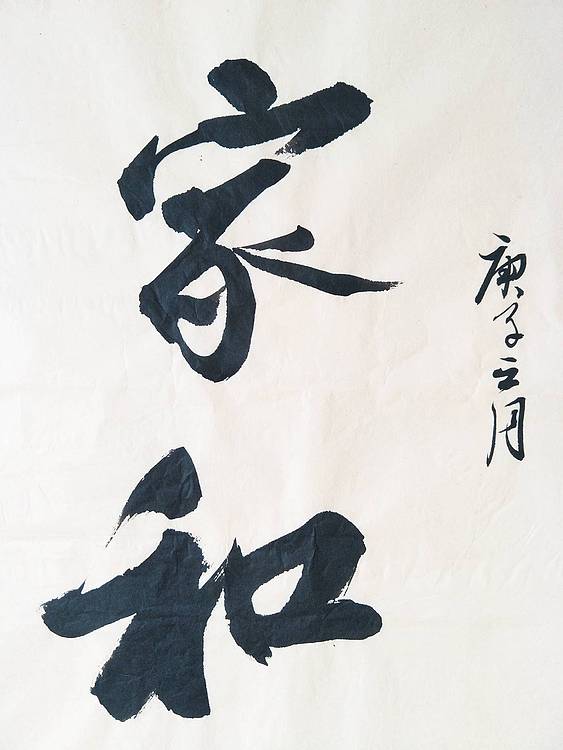 庚子三月
家和